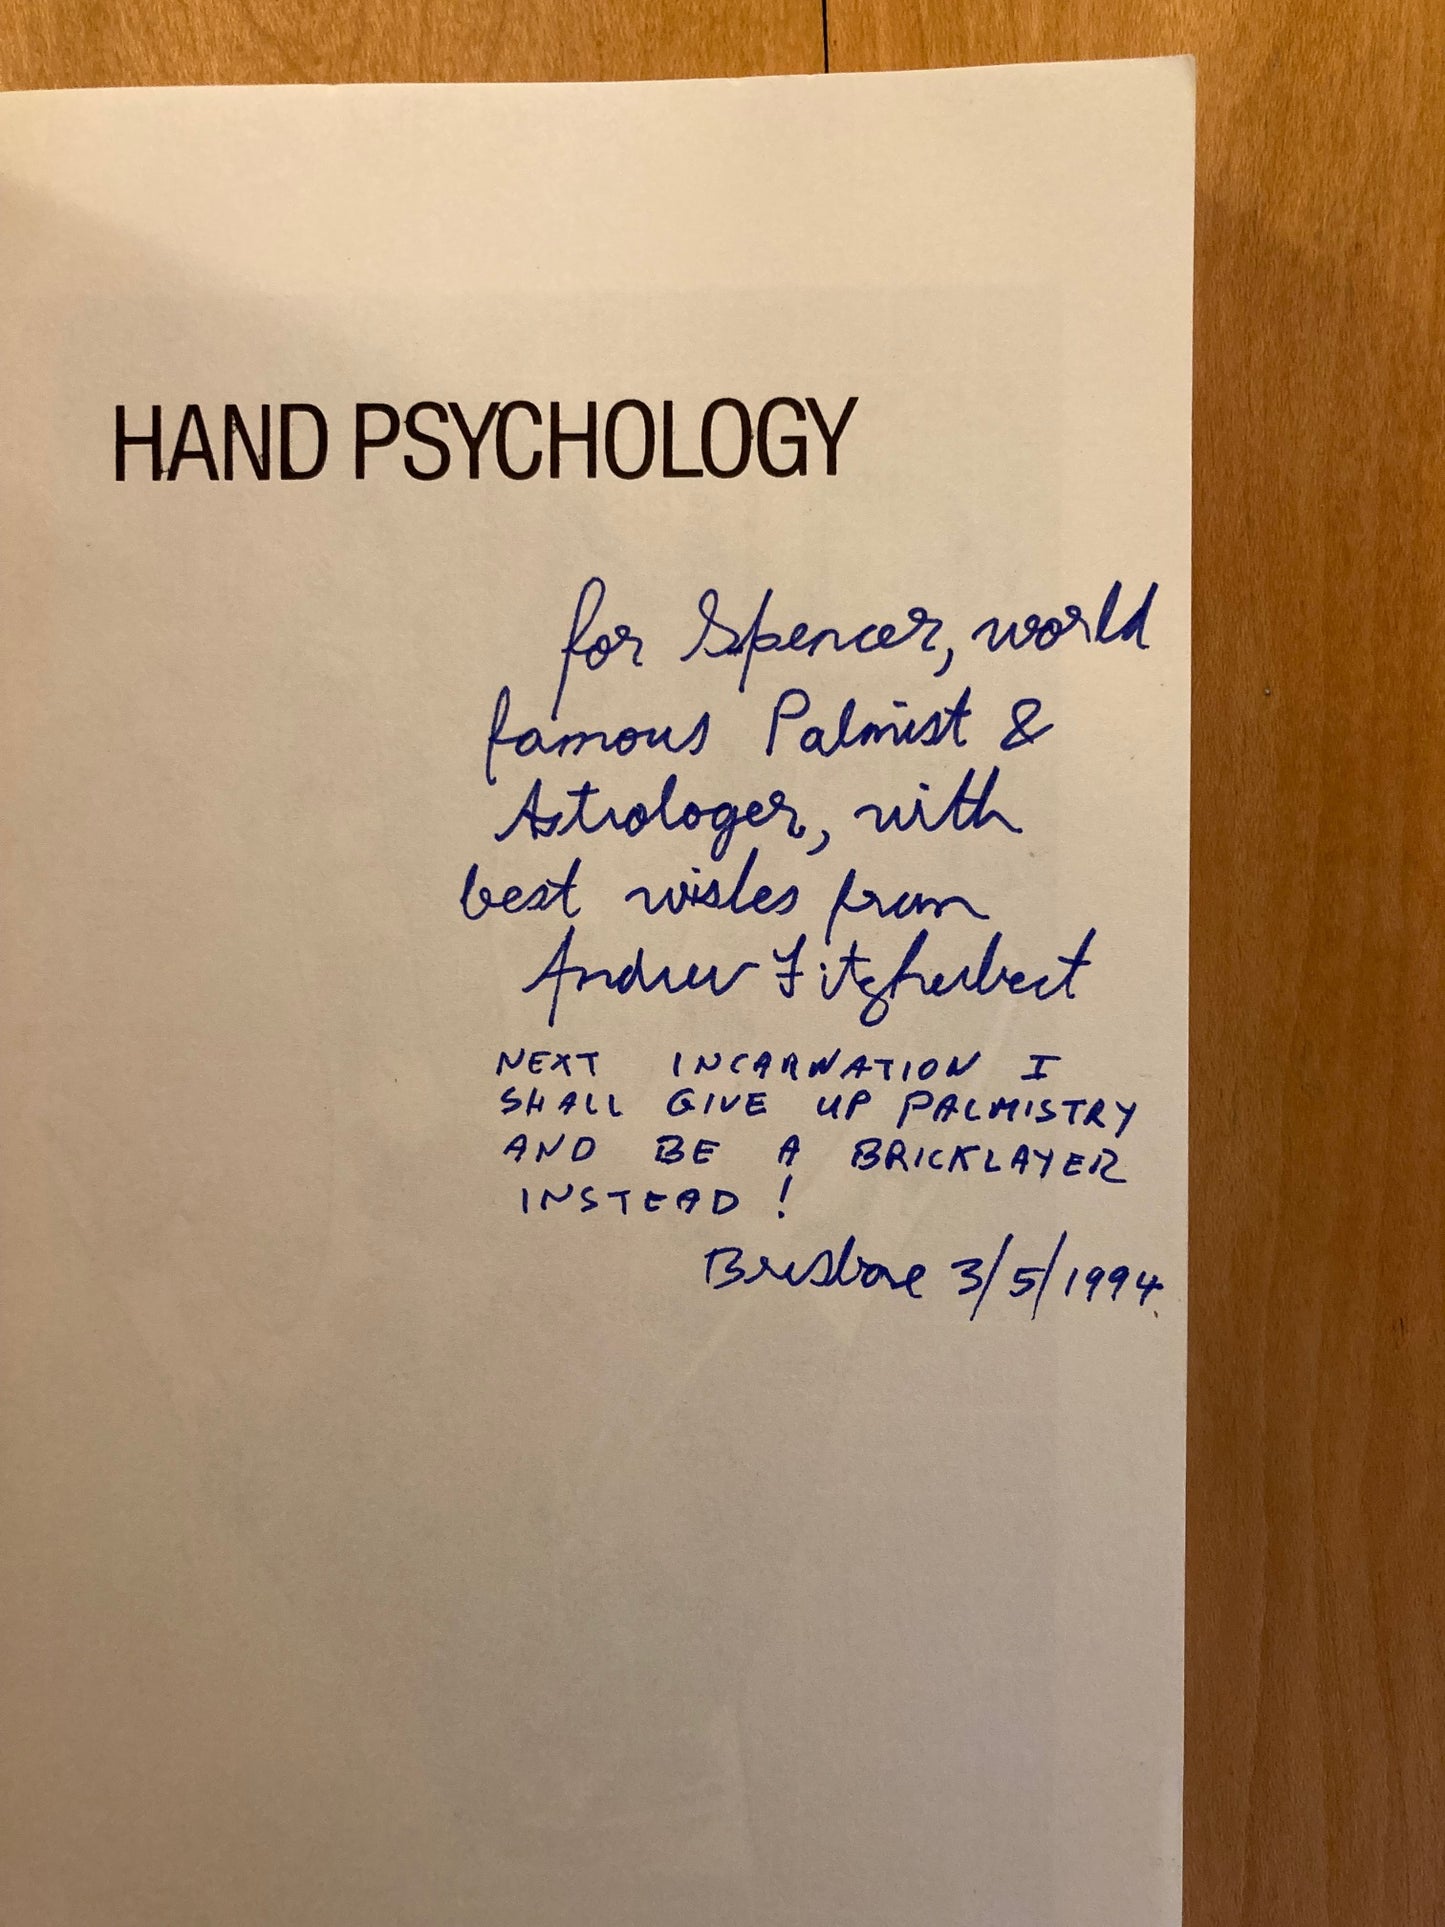 HAND PSYCHOLOGY
for Spencer, world
famous Palmist &
Astrologer, with
best wishes from
Andrew Fitzherbert
NEXT INCARNATION I
SHALL GIVE UP PALMISTRY
AND BE A BRICKLAYER
INSTEAD !
Brisbane 3/5/1994